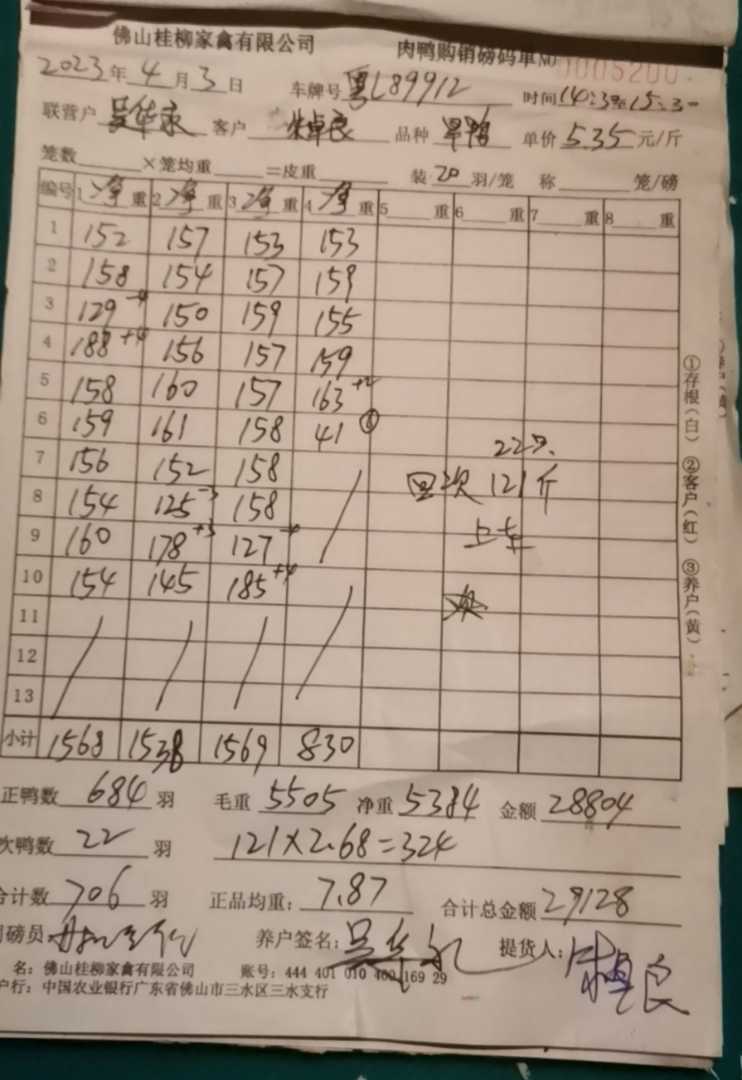 佛山桂柳家禽有限公司 肉鸭购销磅码单 №0005200
2023年4月3日 车牌号 粤L89912 时间14:3至15:30
联营户 吴华永 客户 朱卓良 品种 旱鸭 单价5.35元/斤
笼数 ×笼均重 =皮重 装20羽/笼 称 笼/磅
编号 1净重 2净重 3净重 4净重 5 重 6 重 7 重 8 重
1 152 157 153 153
2 158 154 157 159
3 129-4 150 159 155
4 188+4 156 157 159
5 158 160 157 163+2
6 159 161 158 41⑥
7 156 152 158
22只
8 154 125-3 158 回次 121斤
9 160 178+3 127-4 上车
10 154 145 185+4
11
12
13
小计 1568 1538 1569 830
正鸭数 684 羽 毛重 5505 净重 5384 金额 28804
次鸭数 22 羽 121×2.68=324
合计数 706 羽 正品均重: 7.87 合计总金额 29128
司磅员 养户签名: 吴华永 提货人: 朱卓良
名: 佛山桂柳家禽有限公司 账号: 444 401 010 400 169 29
户行: 中国农业银行广东省佛山市三水区三水支行
①存根(白) ②客户(红) ③养户(黄)